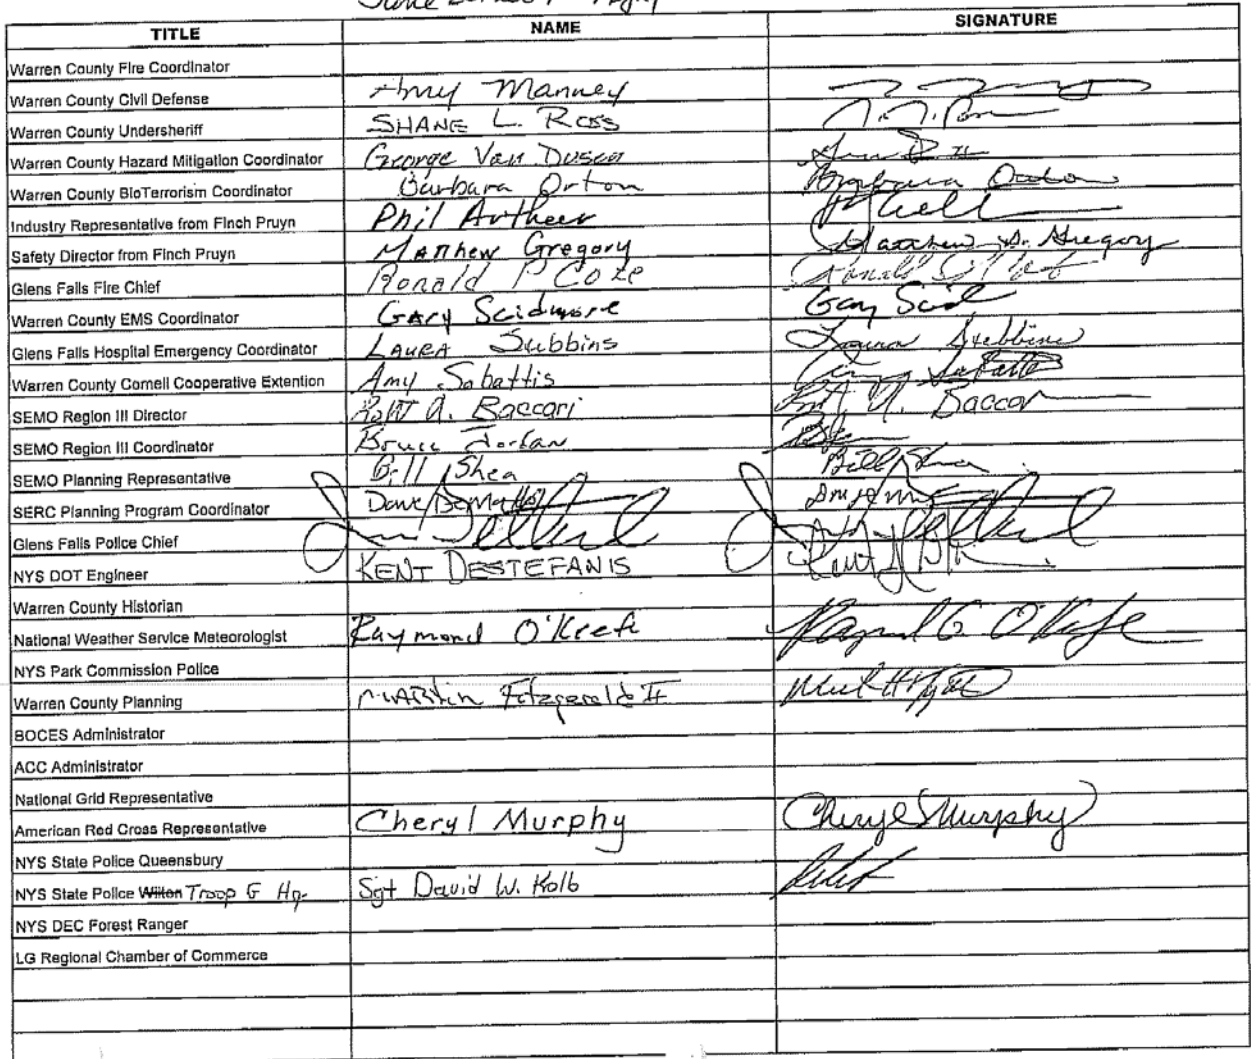 TITLE NAME SIGNATURE
Warren County Fire Coordinator
Warren County Civil Defense Amy Manney
Warren County Undersheriff SHANE L. ROSS
Warren County Hazard Mitigation Coordinator George Van Dusen
Warren County BioTerrorism Coordinator Barbara Orton Barbara Orton
Industry Representative from Finch Pruyn Phil
Safety Director from Finch Pruyn Matthew Gregory Matthew Gregory
Glens Falls Fire Chief Ronald P Cote
Warren County EMS Coordinator Gary Scidmore Gary
Glens Falls Hospital Emergency Coordinator LAURA Stebbins Laura Stebbins
Warren County Cornell Cooperative Extention Amy Sabattis
SEMO Region III Director A. Baccari
SEMO Region III Coordinator Bruce Jordan
SEMO Planning Representative Bill Shea Bill Shea
SERC Planning Program Coordinator Dave DeMatteo
Glens Falls Police Chief
NYS DOT Engineer KENT DESTEFANIS
Warren County Historian
National Weather Service Meteorologist Raymond O'Keefe Raymond G O'Keefe
NYS Park Commission Police
Warren County Planning MARTIN Fitzgerald II
BOCES Administrator
ACC Administrator
National Grid Representative
American Red Cross Representative Cheryl Murphy Cheryl Murphy
NYS State Police Queensbury
NYS State Police Wilton Troop G Hq. Sgt David W. Kolb
NYS DEC Forest Ranger
LG Regional Chamber of Commerce